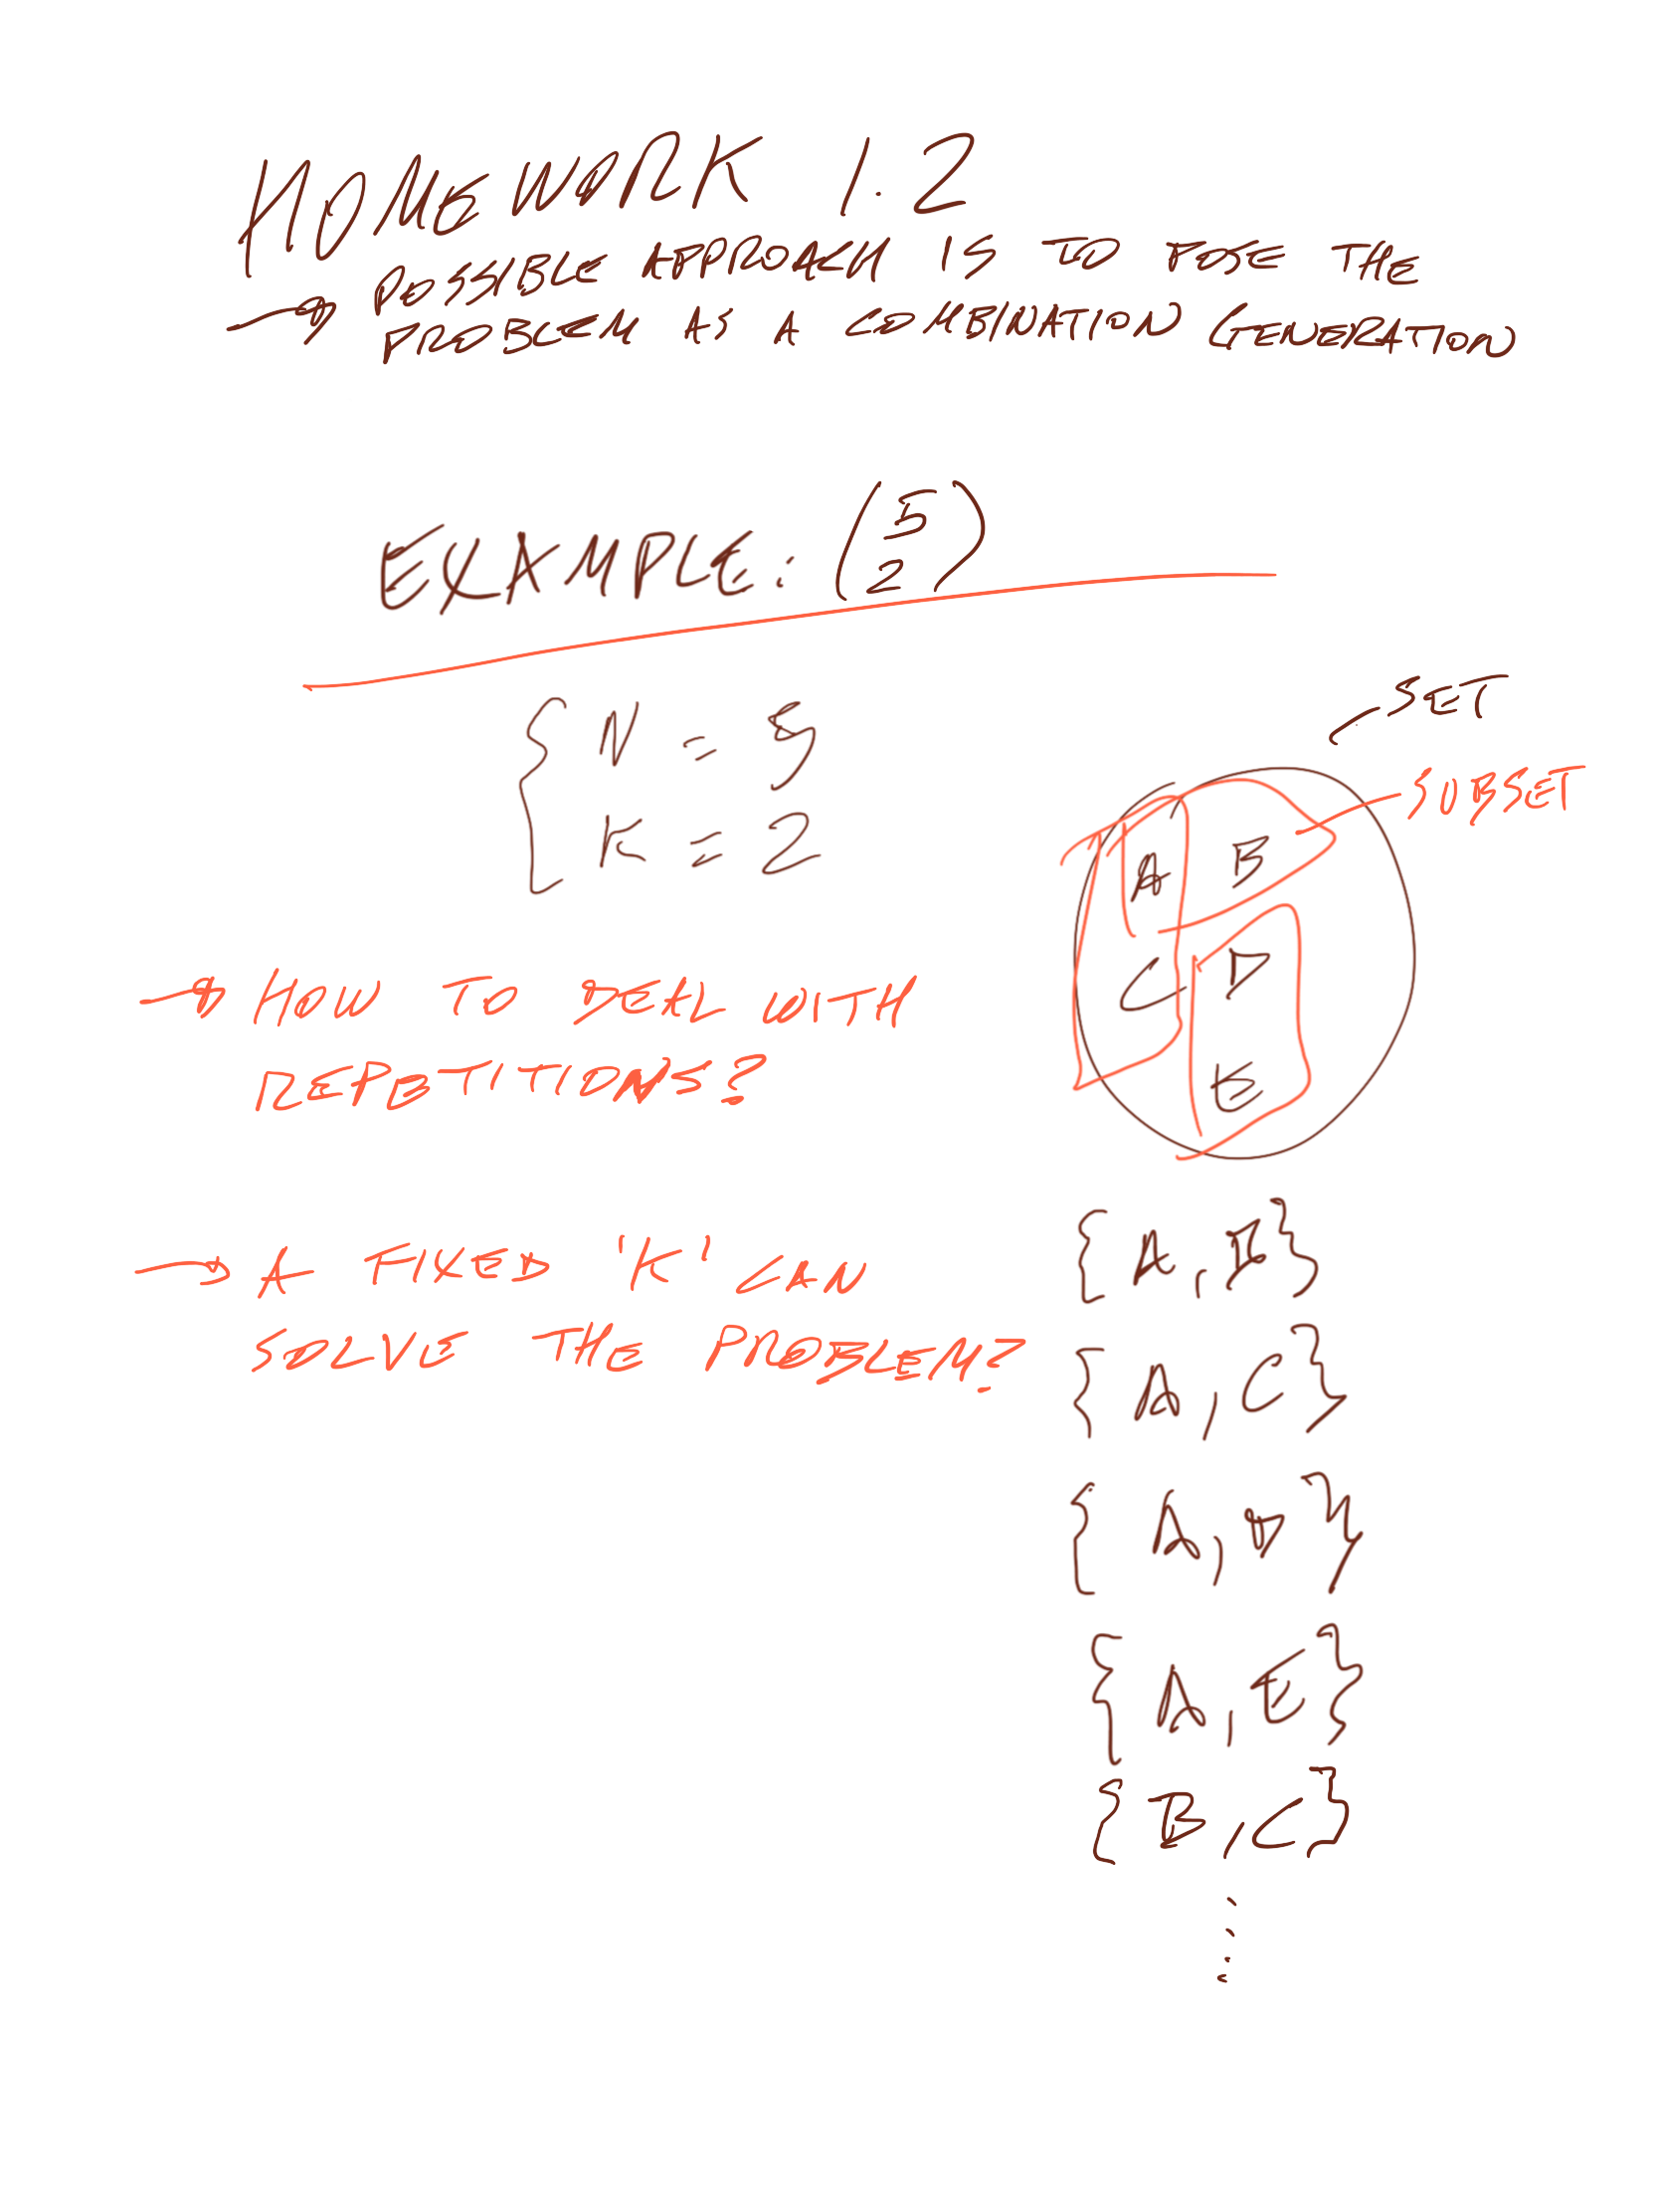 HOMEWORK 1.2
→ POSSIBLE APPROACH IS TO POSE THE
PROBLEM AS A COMBINATION GENERATION
EXAMPLE: (5 2)
{ N = 5
K = 2
SET
SUBSET
A B
C D
E
→ HOW TO DEAL WITH
REPETITIONS?
→ A FIXED 'K' CAN
SOLVE THE PROBLEM?
{A, B}
{A, C}
{A, D}
{A, E}
{B, C}
⋮